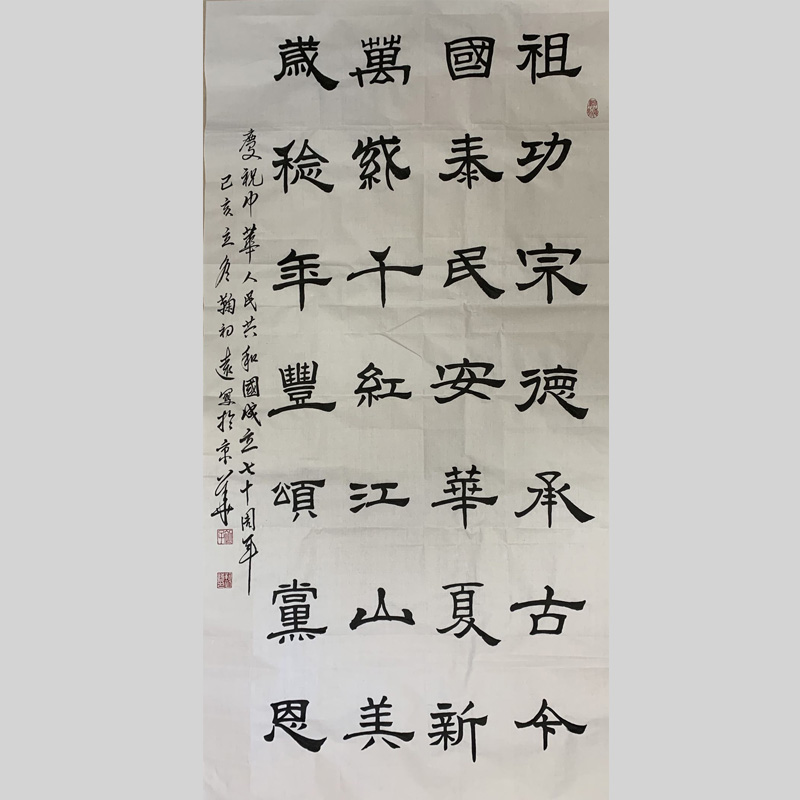 祖功宗德承古今
國泰民安華夏新
萬紫千紅江山美
歲稔年豐頌黨恩
慶祝中華人民共和國成立七十周年
己亥立冬鞠初遠寫於京華